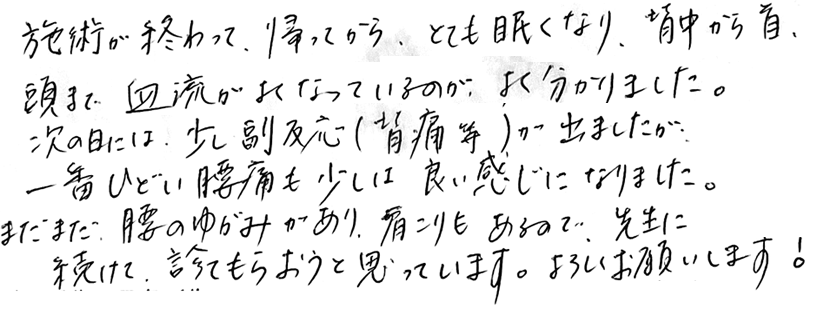 施術が終わって、帰ってから、とても眠くなり、背中から首、
頭まで血流がよくなっているのが、よく分かりました。
次の日には、少し副反応(背痛等)が出ましたが、
一番ひどい腰痛も少しは良い感じになりました。
まだまだ、腰のゆがみがあり、肩こりもあるので、先生に
続けて、診てもらおうと思っています。よろしくお願いします!